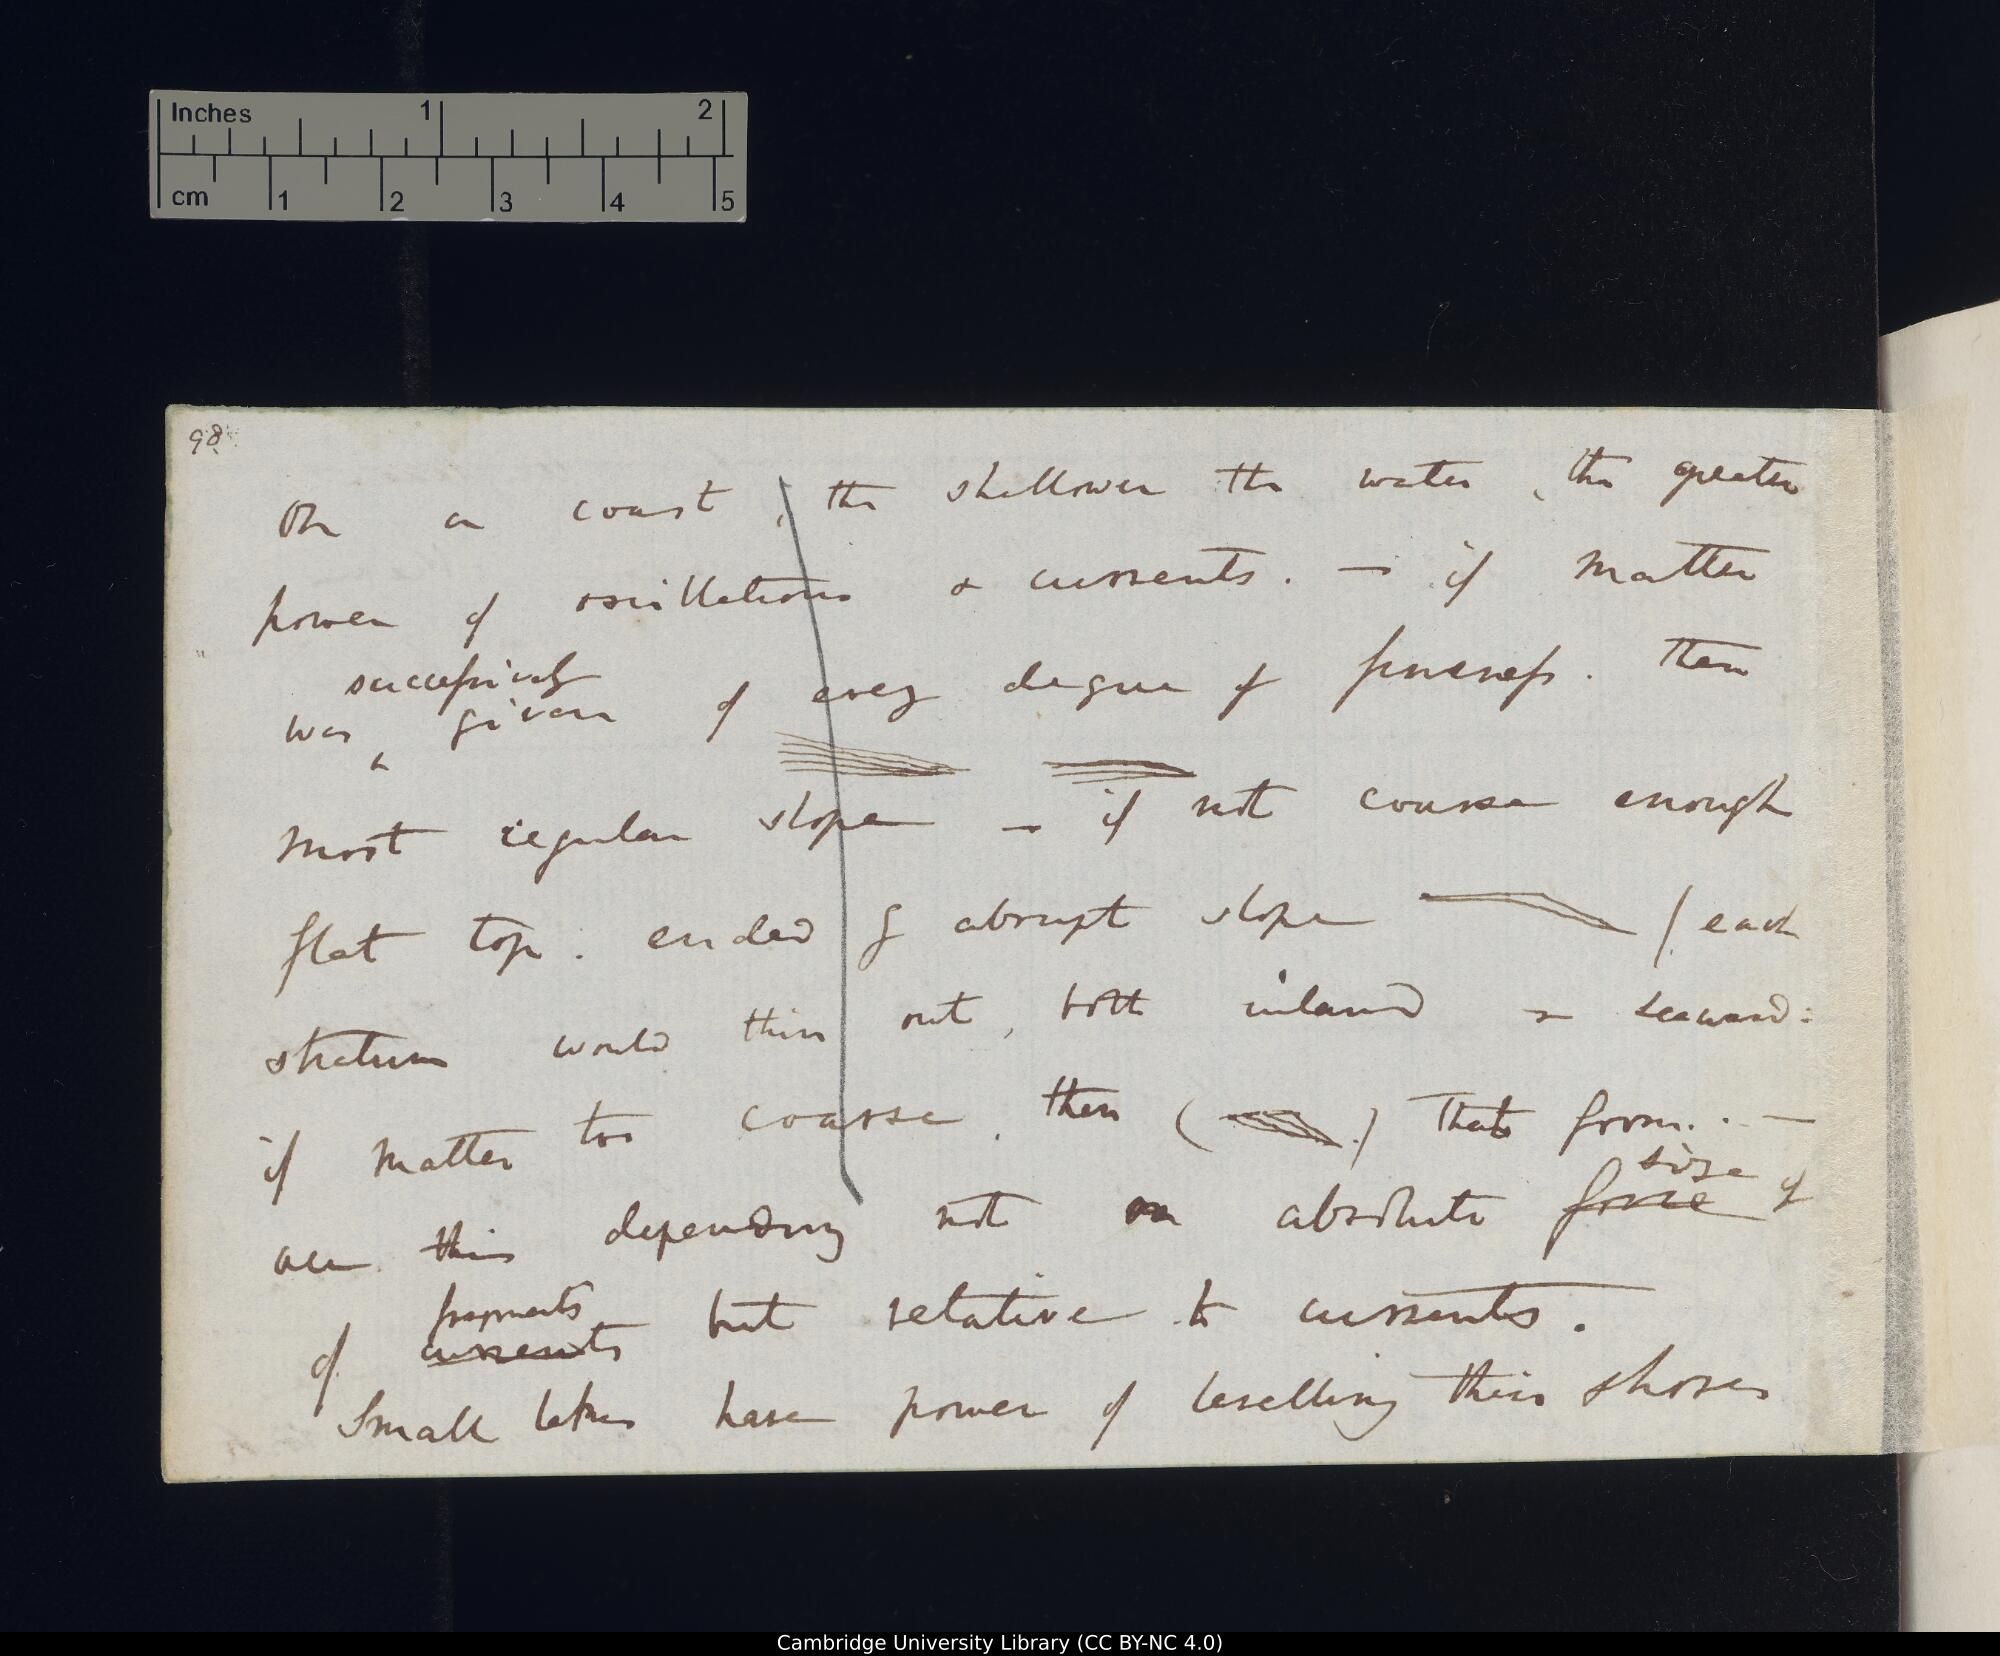 Inches 1 2
cm 1 2 3 4 5
98
On a coast, the shallower the water, the greater
power of oscillations & currents. — if matter
successively
was given of every degree of fineness. then
most regular slope — if not coarse enough
flat top. ended by abrupt slope (each
stratum would thin out, both inland & seaward:
if matter too coarse, then ( ) that form. —
size of
all this depending not on absolute force
fragments
of currents but relative to currents.
Small lakes have power of levelling their shores
Cambridge University Library (CC BY-NC 4.0)